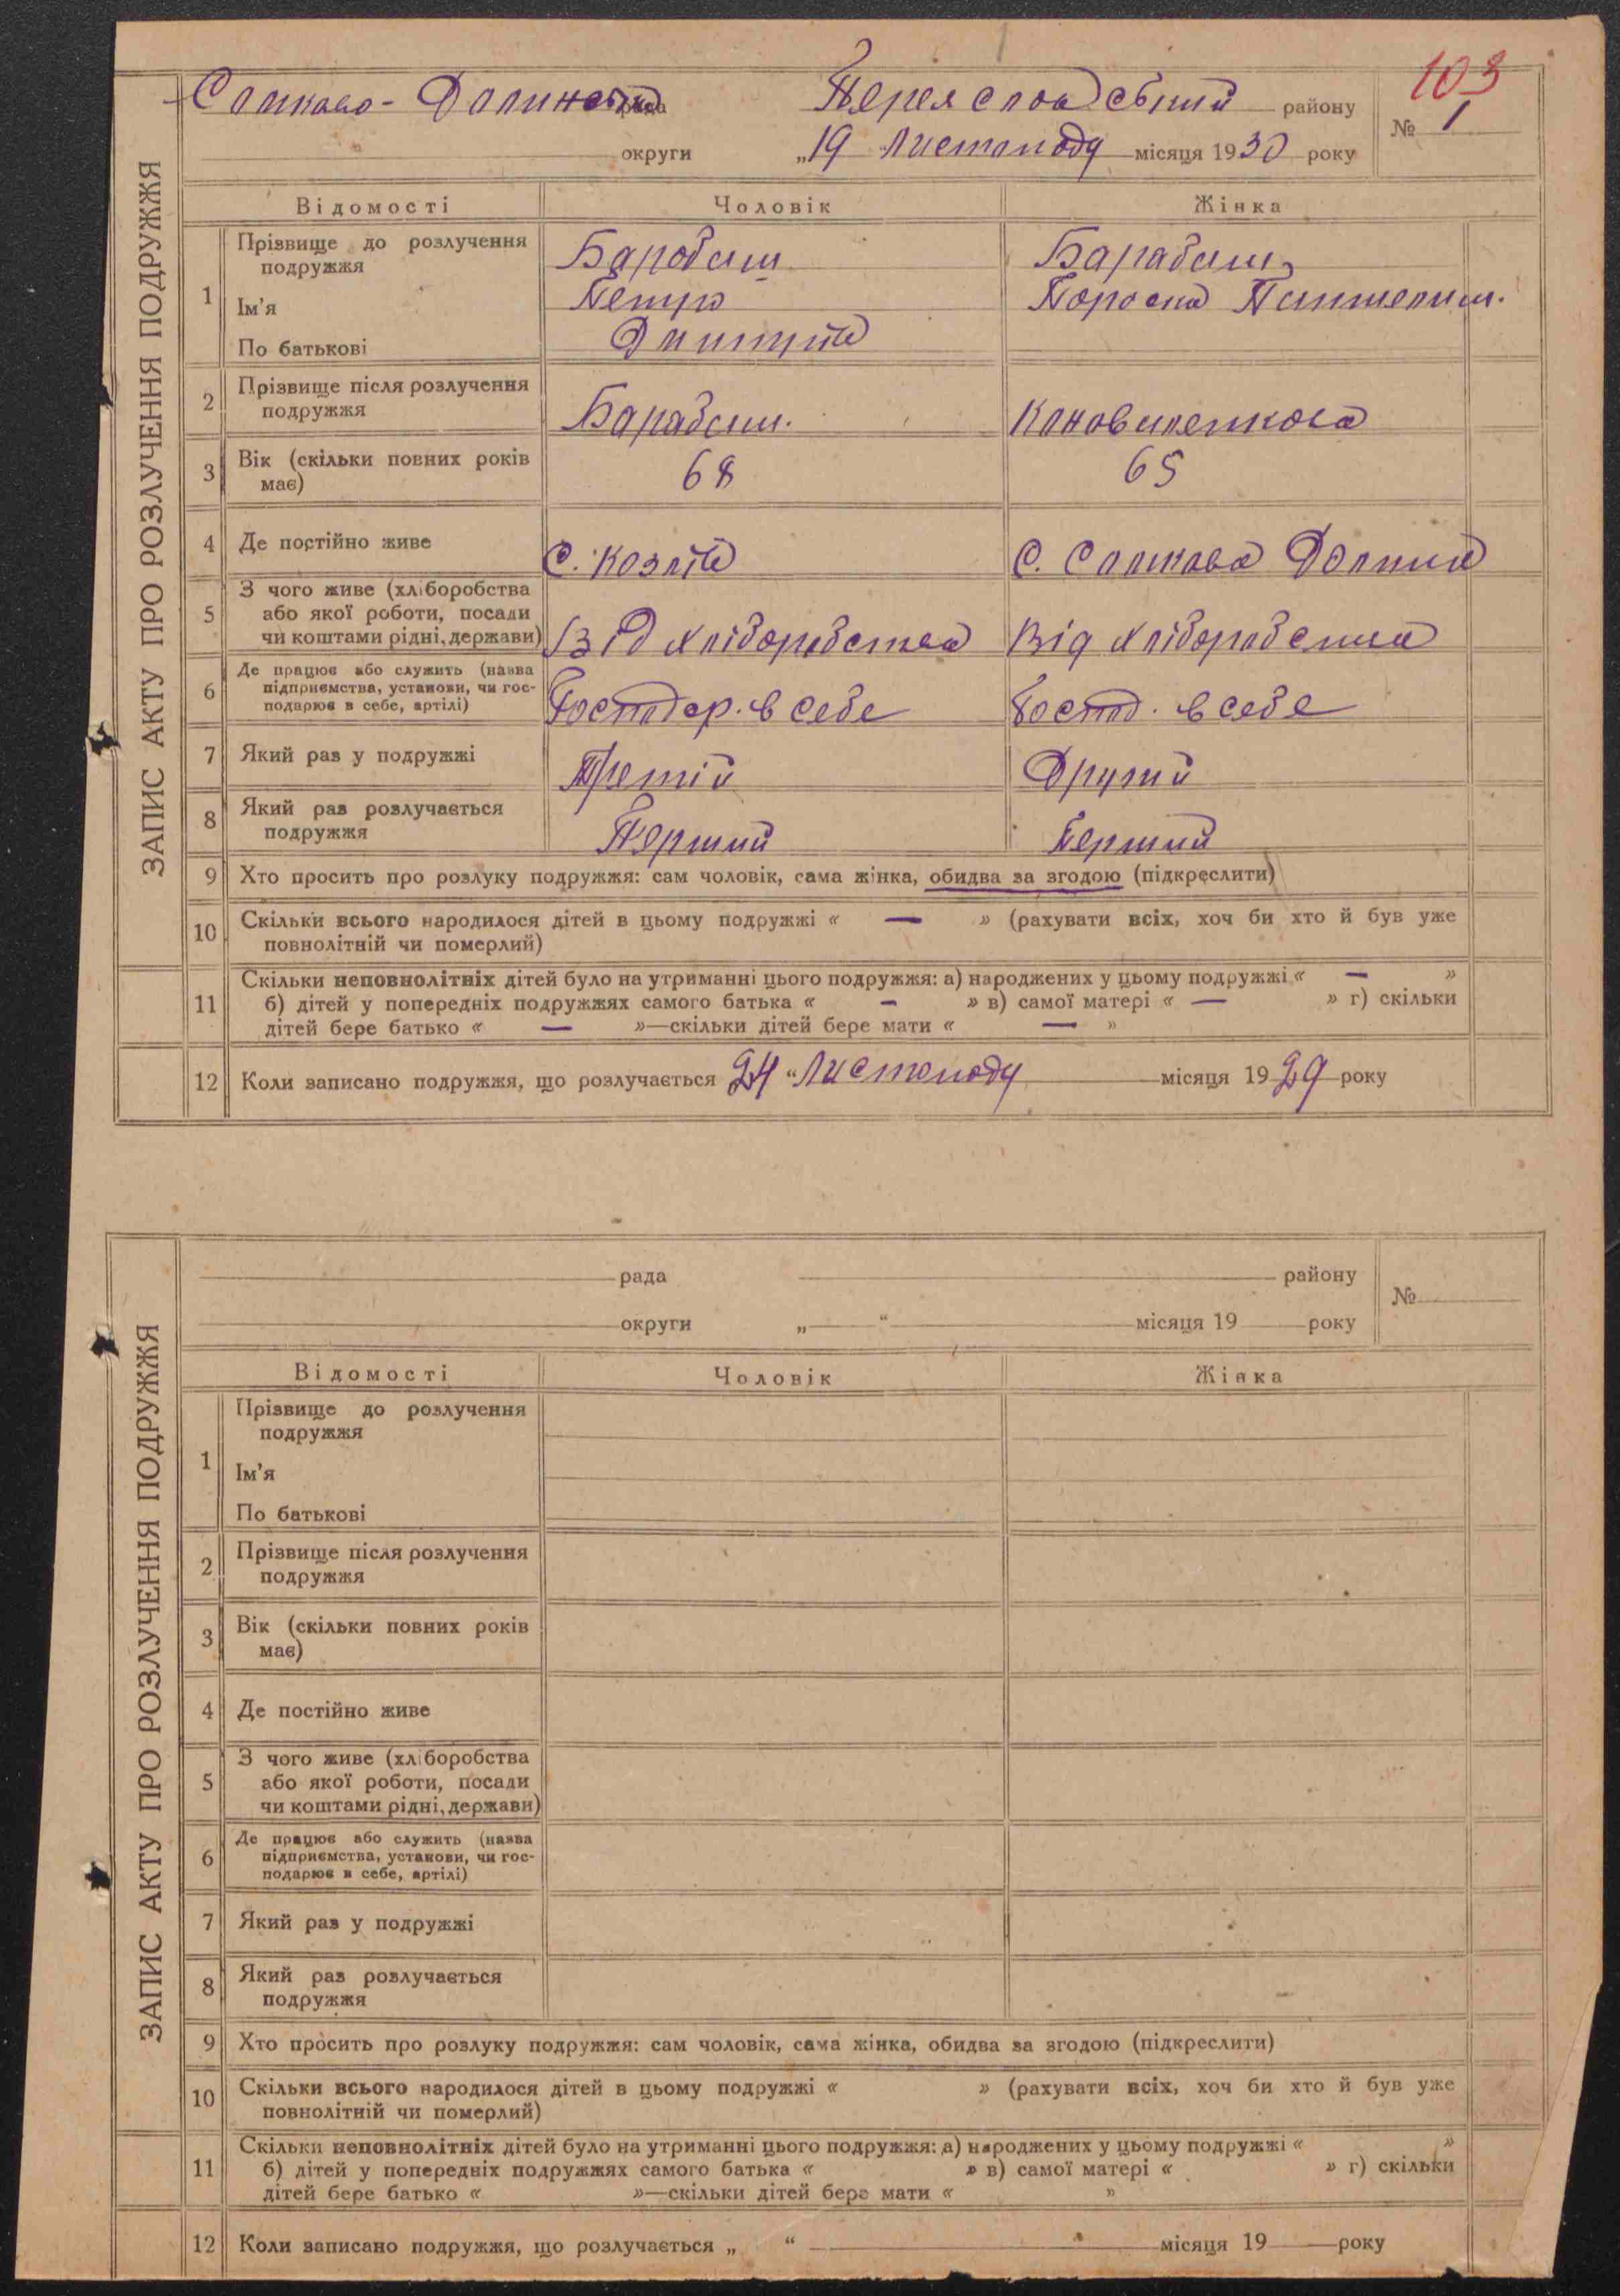 103
Сомково-Долинська рада Переяславський району
№ 1
округи „19 Листопаду місяця 1930 року
ЗАПИС АКТУ ПРО РОЗЛУЧЕННЯ ПОДРУЖЖЯ
Відомості Чоловік Жінка
1 Прізвище до розлучення Барабаш Барабаш
подружжя
Ім'я Петро
По батькові
2 Прізвище після розлучення
подружжя Барабаш.
3 Вік (скільки повних років 68 65
має)
4 Де постійно живе С. Козлів С. Сомкова Долина
5 З чого живе (хліборобства
або якої роботи, посади
чи коштами рідні, держави) Від хліборобства Від хліборобства
6 Де працює або служить (назва
підприємства, установи, чи гос- Господар. в себе Господ. в себе
подарює в себе, артілі)
7 Який раз у подружжі Третій Другий
8 Який раз розлучається
подружжя Перший Перший
9 Хто просить про розлуку подружжя: сам чоловік, сама жінка, обидва за згодою (підкреслити)
10 Скільки всього народилося дітей в цьому подружжі « — » (рахувати всіх, хоч би хто й був уже
повнолітній чи померлий)
11 Скільки неповнолітніх дітей було на утриманні цього подружжя: а) народжених у цьому подружжі « — »
б) дітей у попередніх подружжях самого батька « — » в) самої матері « — » г) скільки
дітей бере батько « — »—скільки дітей бере мати « — »
12 Коли записано подружжя, що розлучається 24 “ Листопаду місяця 1929 року
ЗАПИС АКТУ ПРО РОЗЛУЧЕННЯ ПОДРУЖЖЯ
рада району
№
округи „ “ місяця 19 року
Відомості Чоловік Жінка
1 Прізвище до розлучення
подружжя
Ім'я
По батькові
2 Прізвище після розлучення
подружжя
3 Вік (скільки повних років
має)
4 Де постійно живе
5 З чого живе (хліборобства
або якої роботи, посади
чи коштами рідні, держави)
6 Де працює або служить (назва
підприємства, установи, чи гос-
подарює в себе, артілі)
7 Який раз у подружжі
8 Який раз розлучається
подружжя
9 Хто просить про розлуку подружжя: сам чоловік, сама жінка, обидва за згодою (підкреслити)
10 Скільки всього народилося дітей в цьому подружжі « » (рахувати всіх, хоч би хто й був уже
повнолітній чи померлий)
11 Скільки неповнолітніх дітей було на утриманні цього подружжя: а) народжених у цьому подружжі « »
б) дітей у попередніх подружжях самого батька « » в) самої матері « » г) скільки
дітей бере батько « »—скільки дітей бере мати « »
12 Коли записано подружжя, що розлучається „ “ місяця 19 року